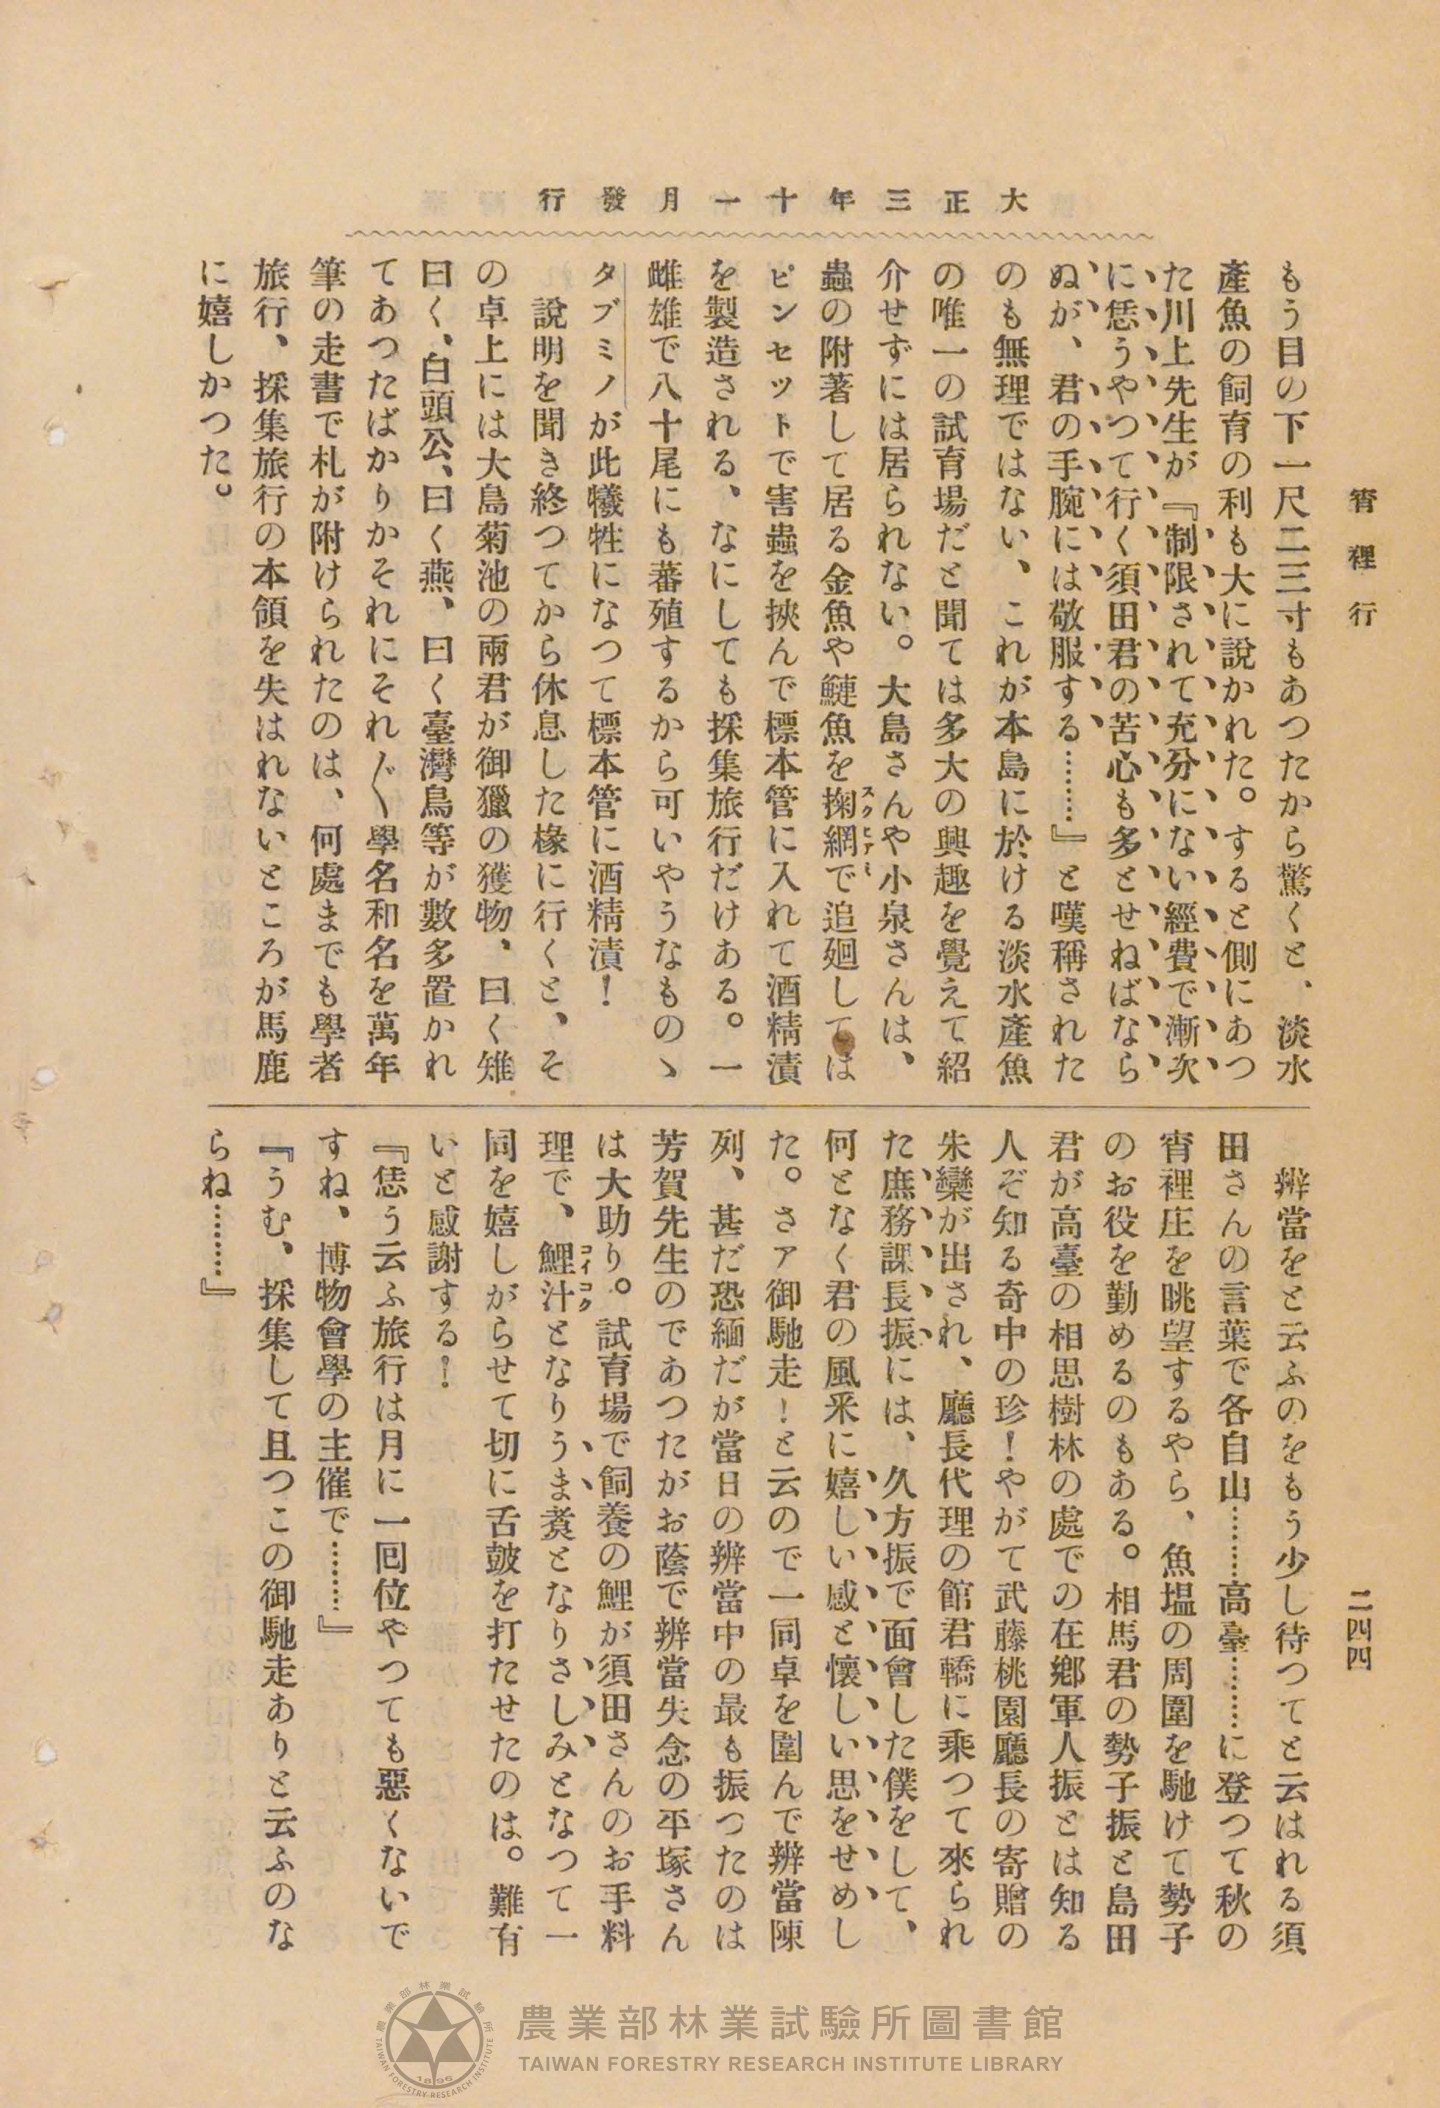 宵裡行
二四四
大正三年十一月發行
もう目の下一尺二三寸もあつたから驚くと、淡水
產魚の飼育の利も大に說かれた。すると側にあつ
た川上先生が『制限されて充分にない經費で漸次
に恁うやつて行く須田君の苦心も多とせねばなら
ぬが、君の手腕には敬服する………』と嘆稱された
のも無理ではない、これが本島に於ける淡水產魚
の唯一の試育場だと聞ては多大の興趣を覺えて紹
介せずには居られない。大島さんや小泉さんは、
蟲の附著して居る金魚や鰱魚を掬網スクヒアミで追廻しては
ピンセットで害蟲を挾んで標本管に入れて酒精漬
を製造される、なにしても採集旅行だけある。一
雌雄で八十尾にも蕃殖するから可いやうなものゝ
タブミノが此犧牲になつて標本管に酒精漬！
說明を聞き終つてから休息した椽に行くと、そ
の卓上には大島菊池の兩君が御獵の獲物、曰く雉
曰く、白頭公、曰く燕、曰く臺灣鳥等が數多置かれ
てあつたばかりかそれにそれ〴〵學名和名を萬年
筆の走書で札が附けられたのは、何處までも學者
旅行、採集旅行の本領を失はれないところが馬鹿
に嬉しかつた。
辨當をと云ふのをもう少し待つてと云はれる須
田さんの言葉で各自山………高臺………に登つて秋の
宵裡庄を眺望するやら、魚塭の周圍を馳けて勢子
のお役を勤めるのもある。相馬君の勢子振と島田
君が高臺の相思樹林の處での在鄕軍人振とは知る
人ぞ知る奇中の珍！やがて武藤桃園廳長の寄贈の
朱欒が出され、廳長代理の館君轎に乘つて來られ
た庶務課長振には、久方振で面會した僕をして、
何となく君の風釆に嬉しい感と懷しい思をせめし
た。さァ御馳走！と云ので一同卓を圍んで辨當陳
列、甚だ恐緬だが當日の辨當中の最も振つたのは
芳賀先生のであつたがお蔭で辨當失念の平塚さん
は大助り。試育場で飼養の鯉が須田さんのお手料
理で、鯉汁コイコクとなりうま煑となりさしみとなつて一
同を嬉しがらせて切に舌皷を打たせたのは。難有
いと感謝する！
『恁う云ふ旅行は月に一囘位やつても惡くないで
すね、博物會學の主催で………』
『うむ、採集して且つこの御馳走ありと云ふのな
らね………』
農業部林業試驗所圖書館
TAIWAN FORESTRY RESEARCH INSTITUTE LIBRARY
農業部林業試驗所
TAIWAN FORESTRY RESEARCH INSTITUTE
1896